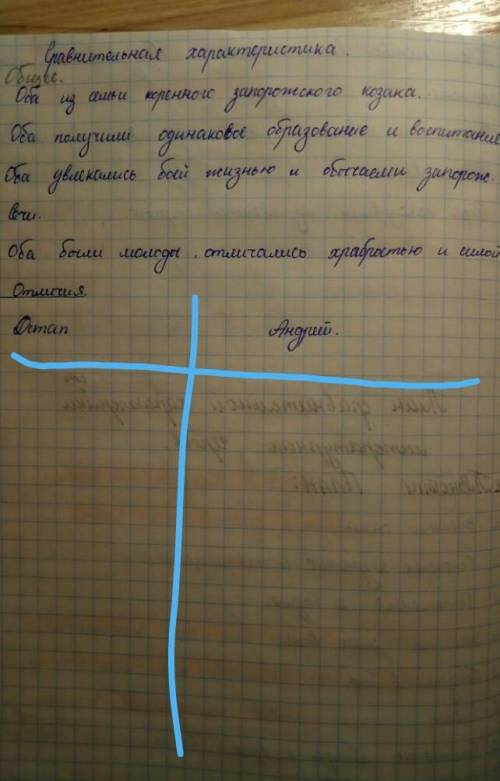 Сравнительная характеристика.
Общее.
Оба из семьи коренного запорожского козака.
Оба получили одинаковое образование и воспитание
Оба увлекались боей жизнью и обычаеми запорож.
сечи.
Оба были молоды, отличались храбростью и силой
Отличия.
Остап Андрий.